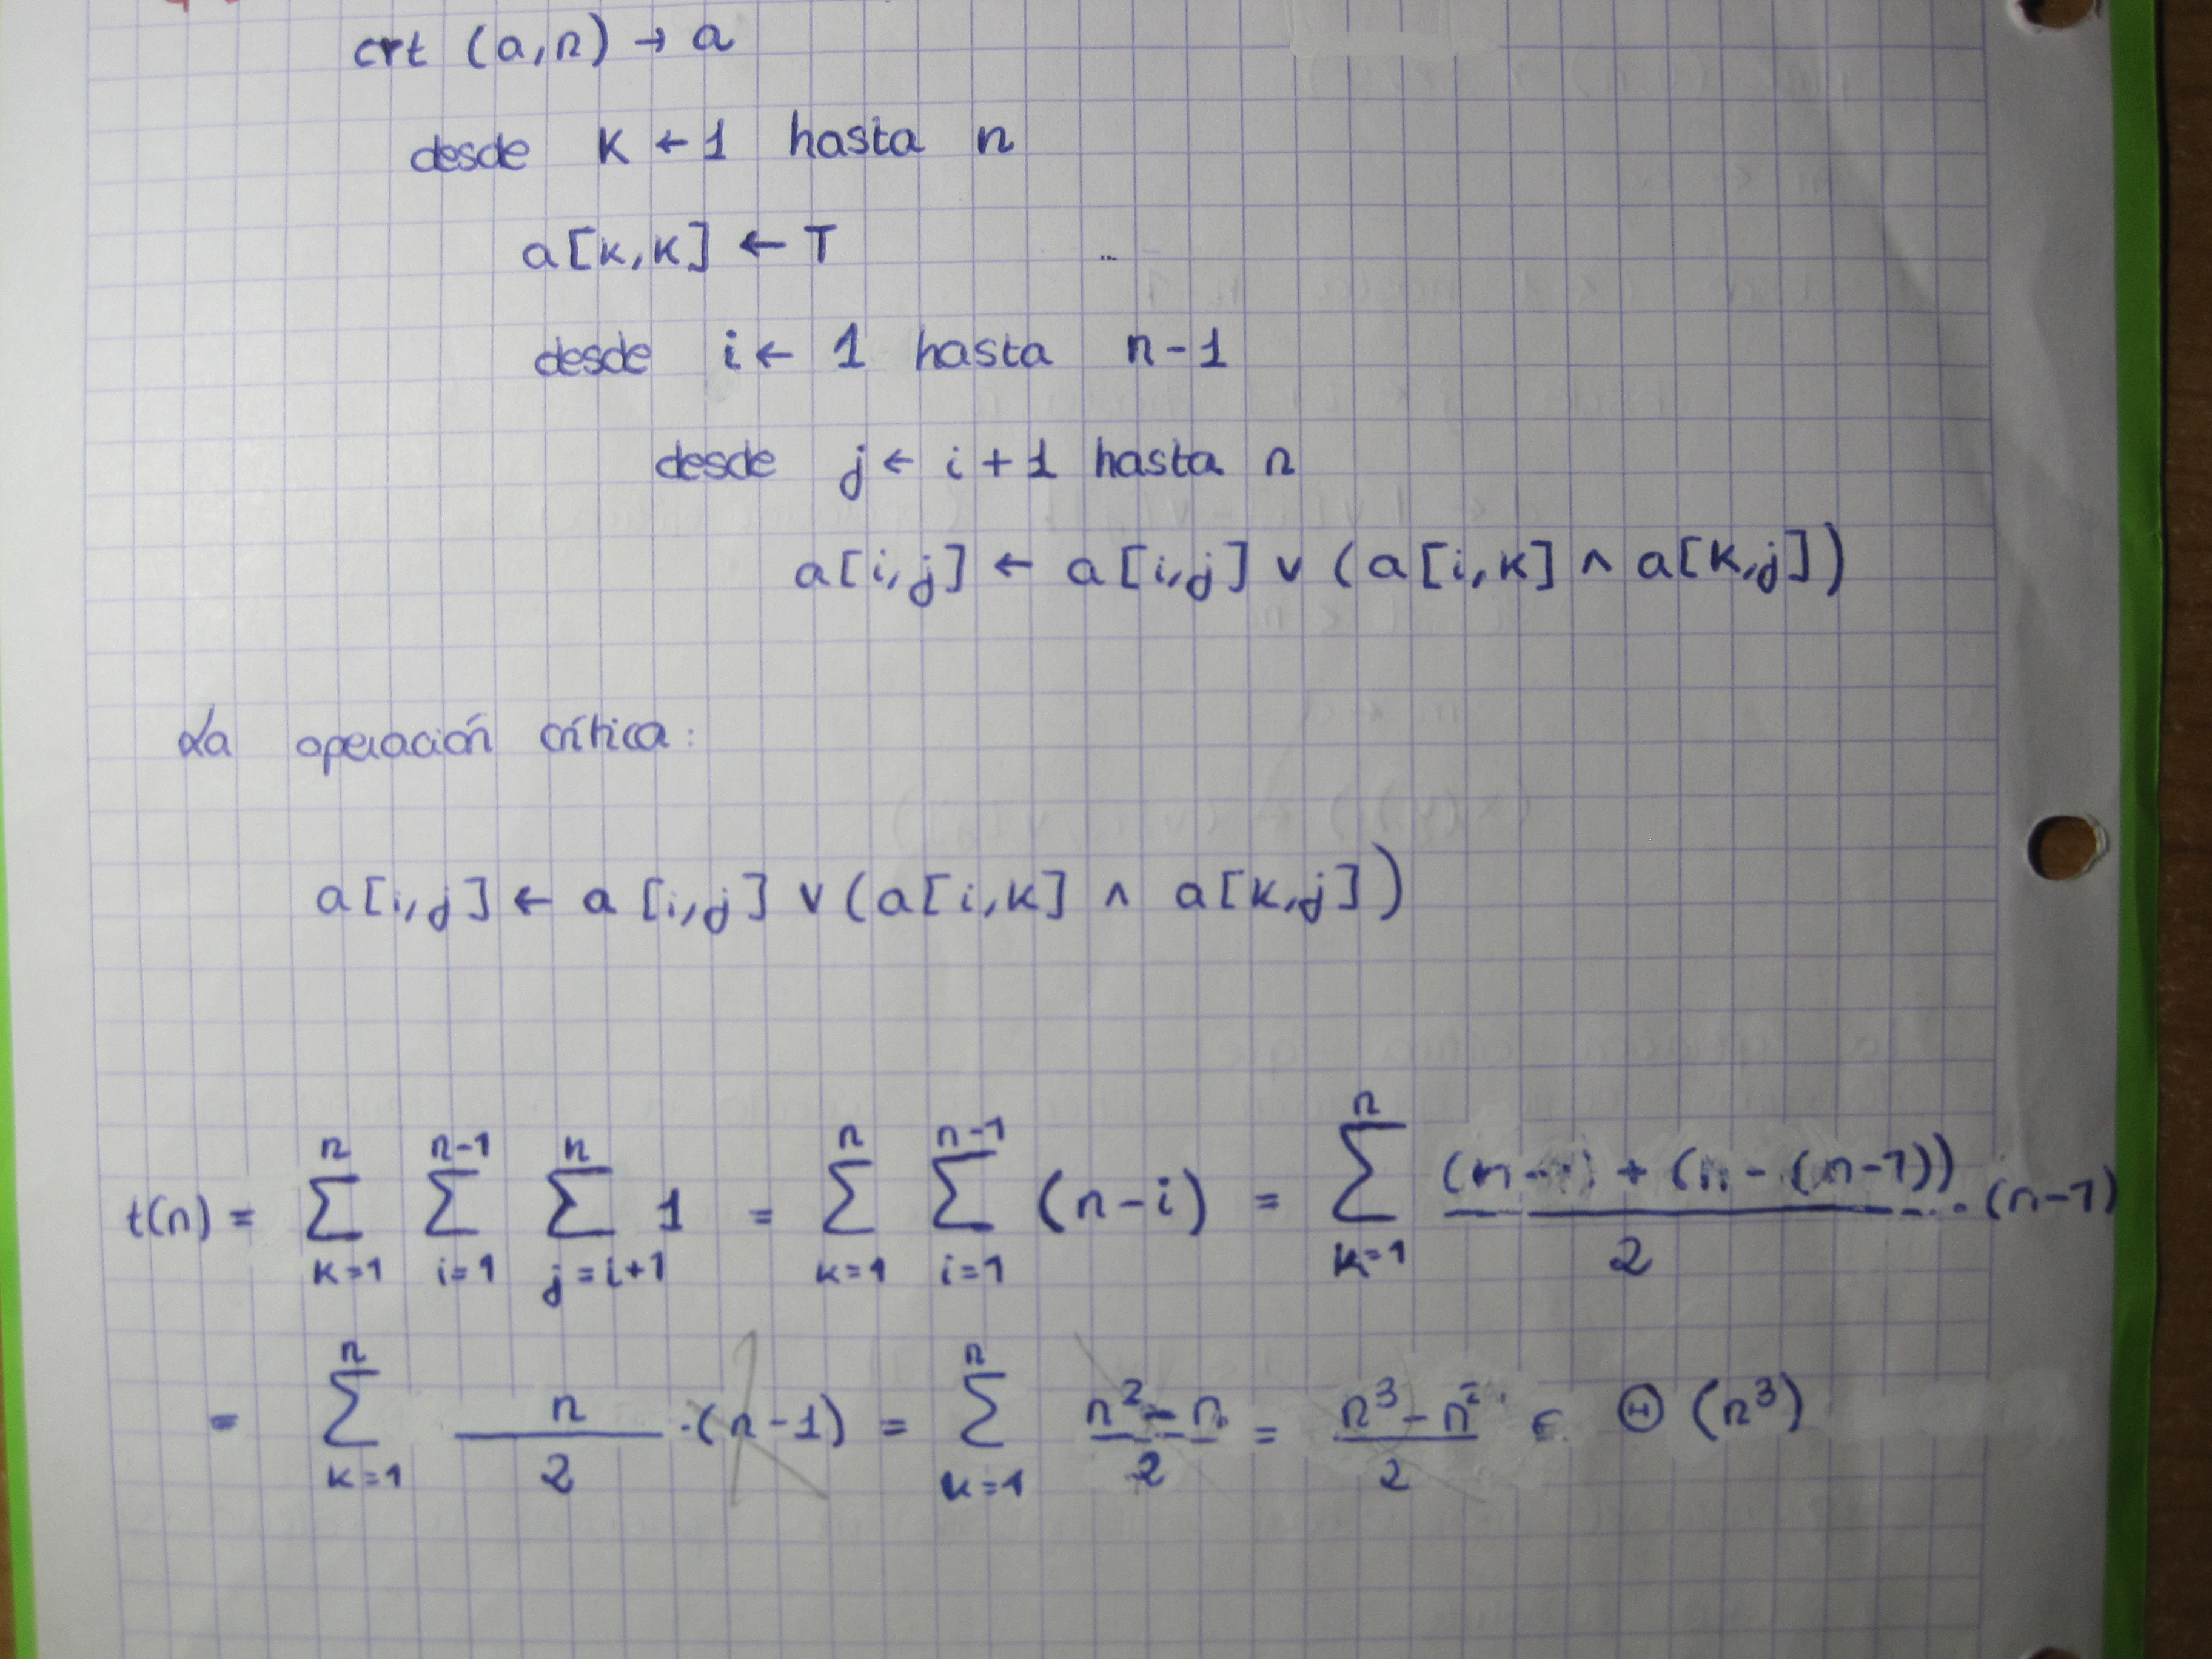 crt (a,n) → a
desde K ← 1 hasta n
a[K,K] ← T
desde i ← 1 hasta n-1
desde j ← i+1 hasta n
a[i,j] ← a[i,j] ∨ (a[i,K] ∧ a[K,j])
La operación crítica:
a[i,j] ← a[i,j] ∨ (a[i,K] ∧ a[K,j])
t(n) = ∑_{K=1}^{n} ∑_{i=1}^{n-1} ∑_{j=i+1}^{n} 1 = ∑_{K=1}^{n} ∑_{i=1}^{n-1} (n-i) = ∑_{K=1}^{n} ((n-1) + (n-(n-1)))/2 · (n-1)
= ∑_{K=1}^{n} n/2 · (n-1) = ∑_{K=1}^{n} (n²-n)/2 = (n³-n²)/2 ∈ Θ(n³)